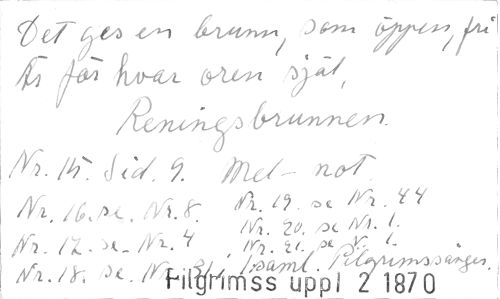 Det ges en brunn, som öppen, fri
Är för hvar oren själ,
Reningsbrunnen.
Nr. 15. Sid. 9. Mel- not.
Nr. 16. se. Nr. 8. Nr. 19. se Nr. 44
Nr. 20. se Nr. 1.
Nr. 17. se. Nr. 4 Nr. 21. se Nr. 1.
Nr. 18. se. Nr. 31, saml. Pilgrimssånger.
Filgrimss uppl 2 1870